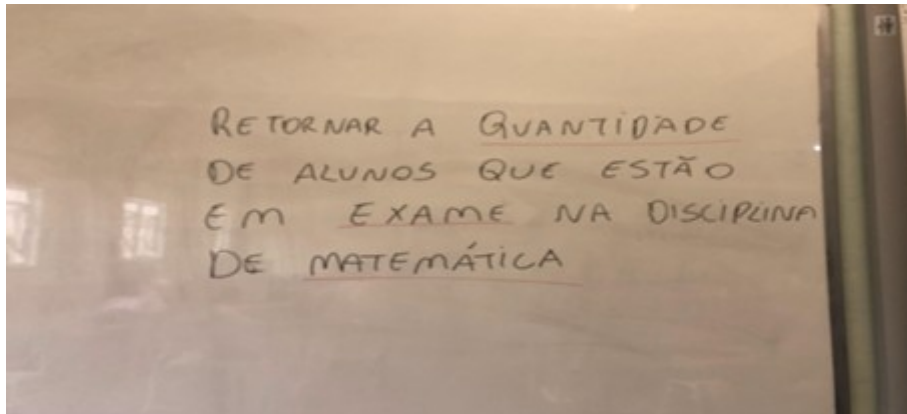 RETORNAR A QUANTIDADE
DE ALUNOS QUE ESTÃO
EM EXAME NA DISCIPLINA
DE MATEMÁTICA